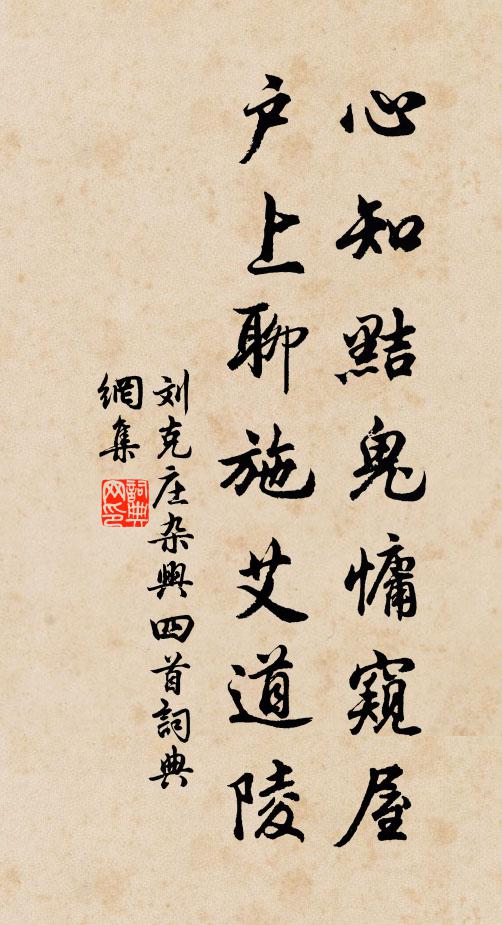 心知黠鬼慵窺屋
户上聊施艾道陵
刘克庄杂興四首詞典
網集
詞典
网印